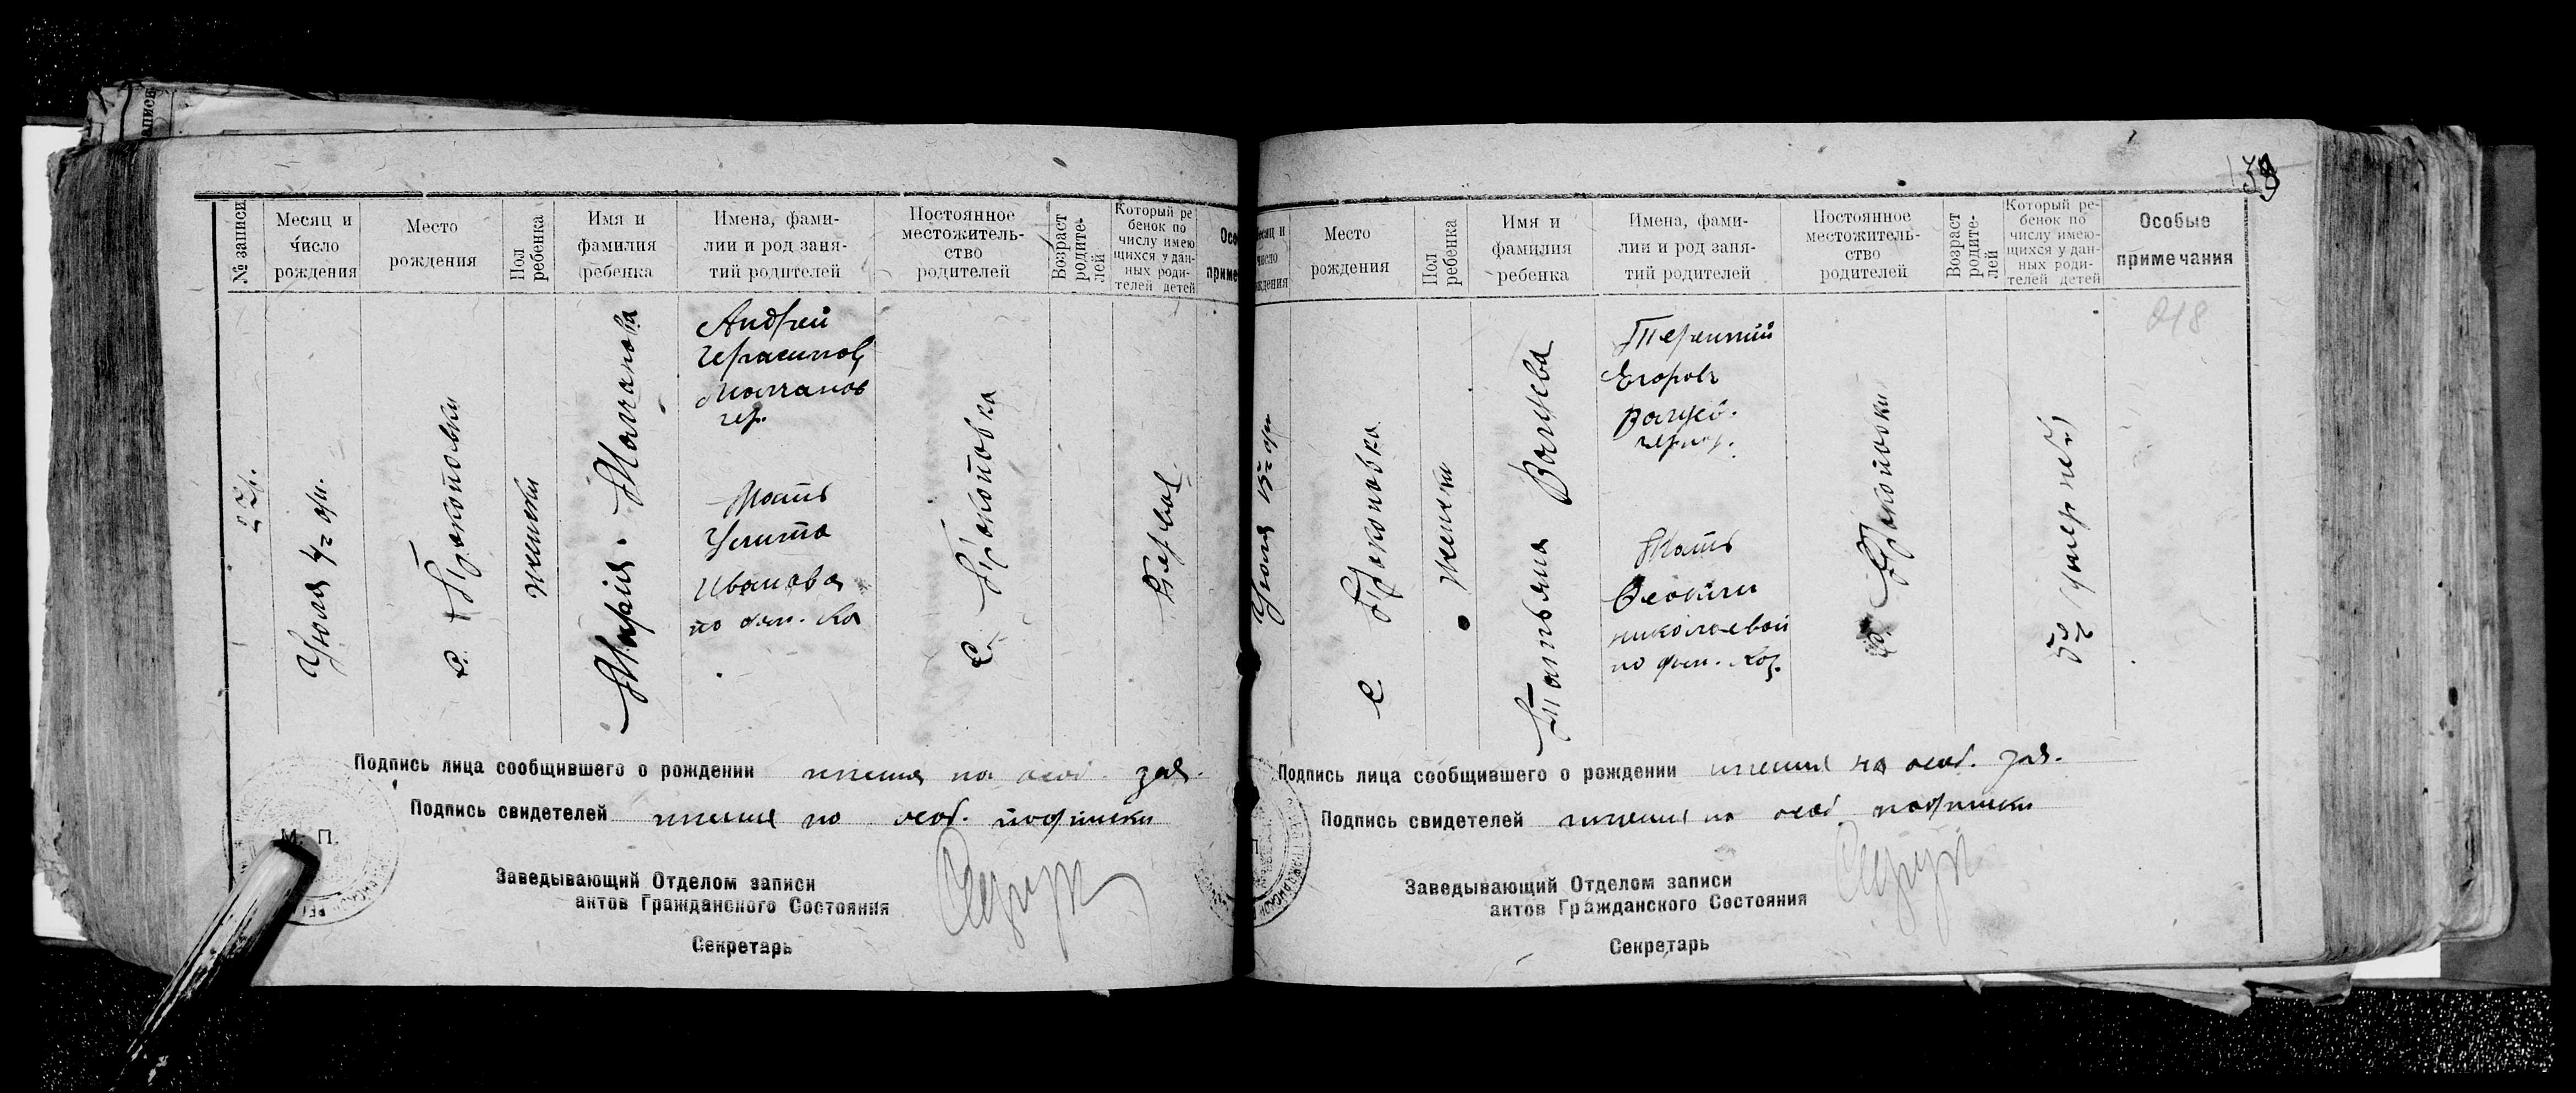 № записи
Месяц и число рождения
Место рождения
Пол ребенка
Имя и фамилия ребенка
Имена, фами-
лии и род заня-
тий родителей
Постоянное
местожитель-
ство
родителей
Возраст родите-
лей
Который ре-
бенок по
числу имею
щихся у дан-
ных роди-
телей детей
Осо
приме
Июля 4го дн.
с. Прокоповки
женски
Мария. Молчанова
Андрей
Герасимов
Молчанов
чер.
Мать
Улита
Иванова
по фам. Ко
с. Прокоповка
Первой.
Подпись лица сообщившего о рождении имеися на особ. зая.
Подпись свидетелей имеися на особ. подписки
М. П.
Заведывающий Отделом записи
актов Гражданского Состояния
Секретарь
Месяц и
число
рождения
Место
рождения
Пол
ребенка
Имя и
фамилия
ребенка
Имена, фами-
лии и род заня-
тий родителей
Постоянное
местожитель-
ство
родителей
Возраст
родите-
лей
Который ре-
бенок по
числу имею-
щихся у дан-
ных роди-
телей детей
Особые
примечания
218
Июля 15го дн
с. Прокоповка
женски
Татьяна
Терентий
Егоровъ
Мать
Феокти
николаевой
по фам. Коз.
с. Прокоповки
Подпись лица сообщившего о рождении имеися на особ. зая.
Подпись свидетелей имеися на особ подписки
Заведывающий Отделом записи
актов Гражданского Состояния
Секретарь